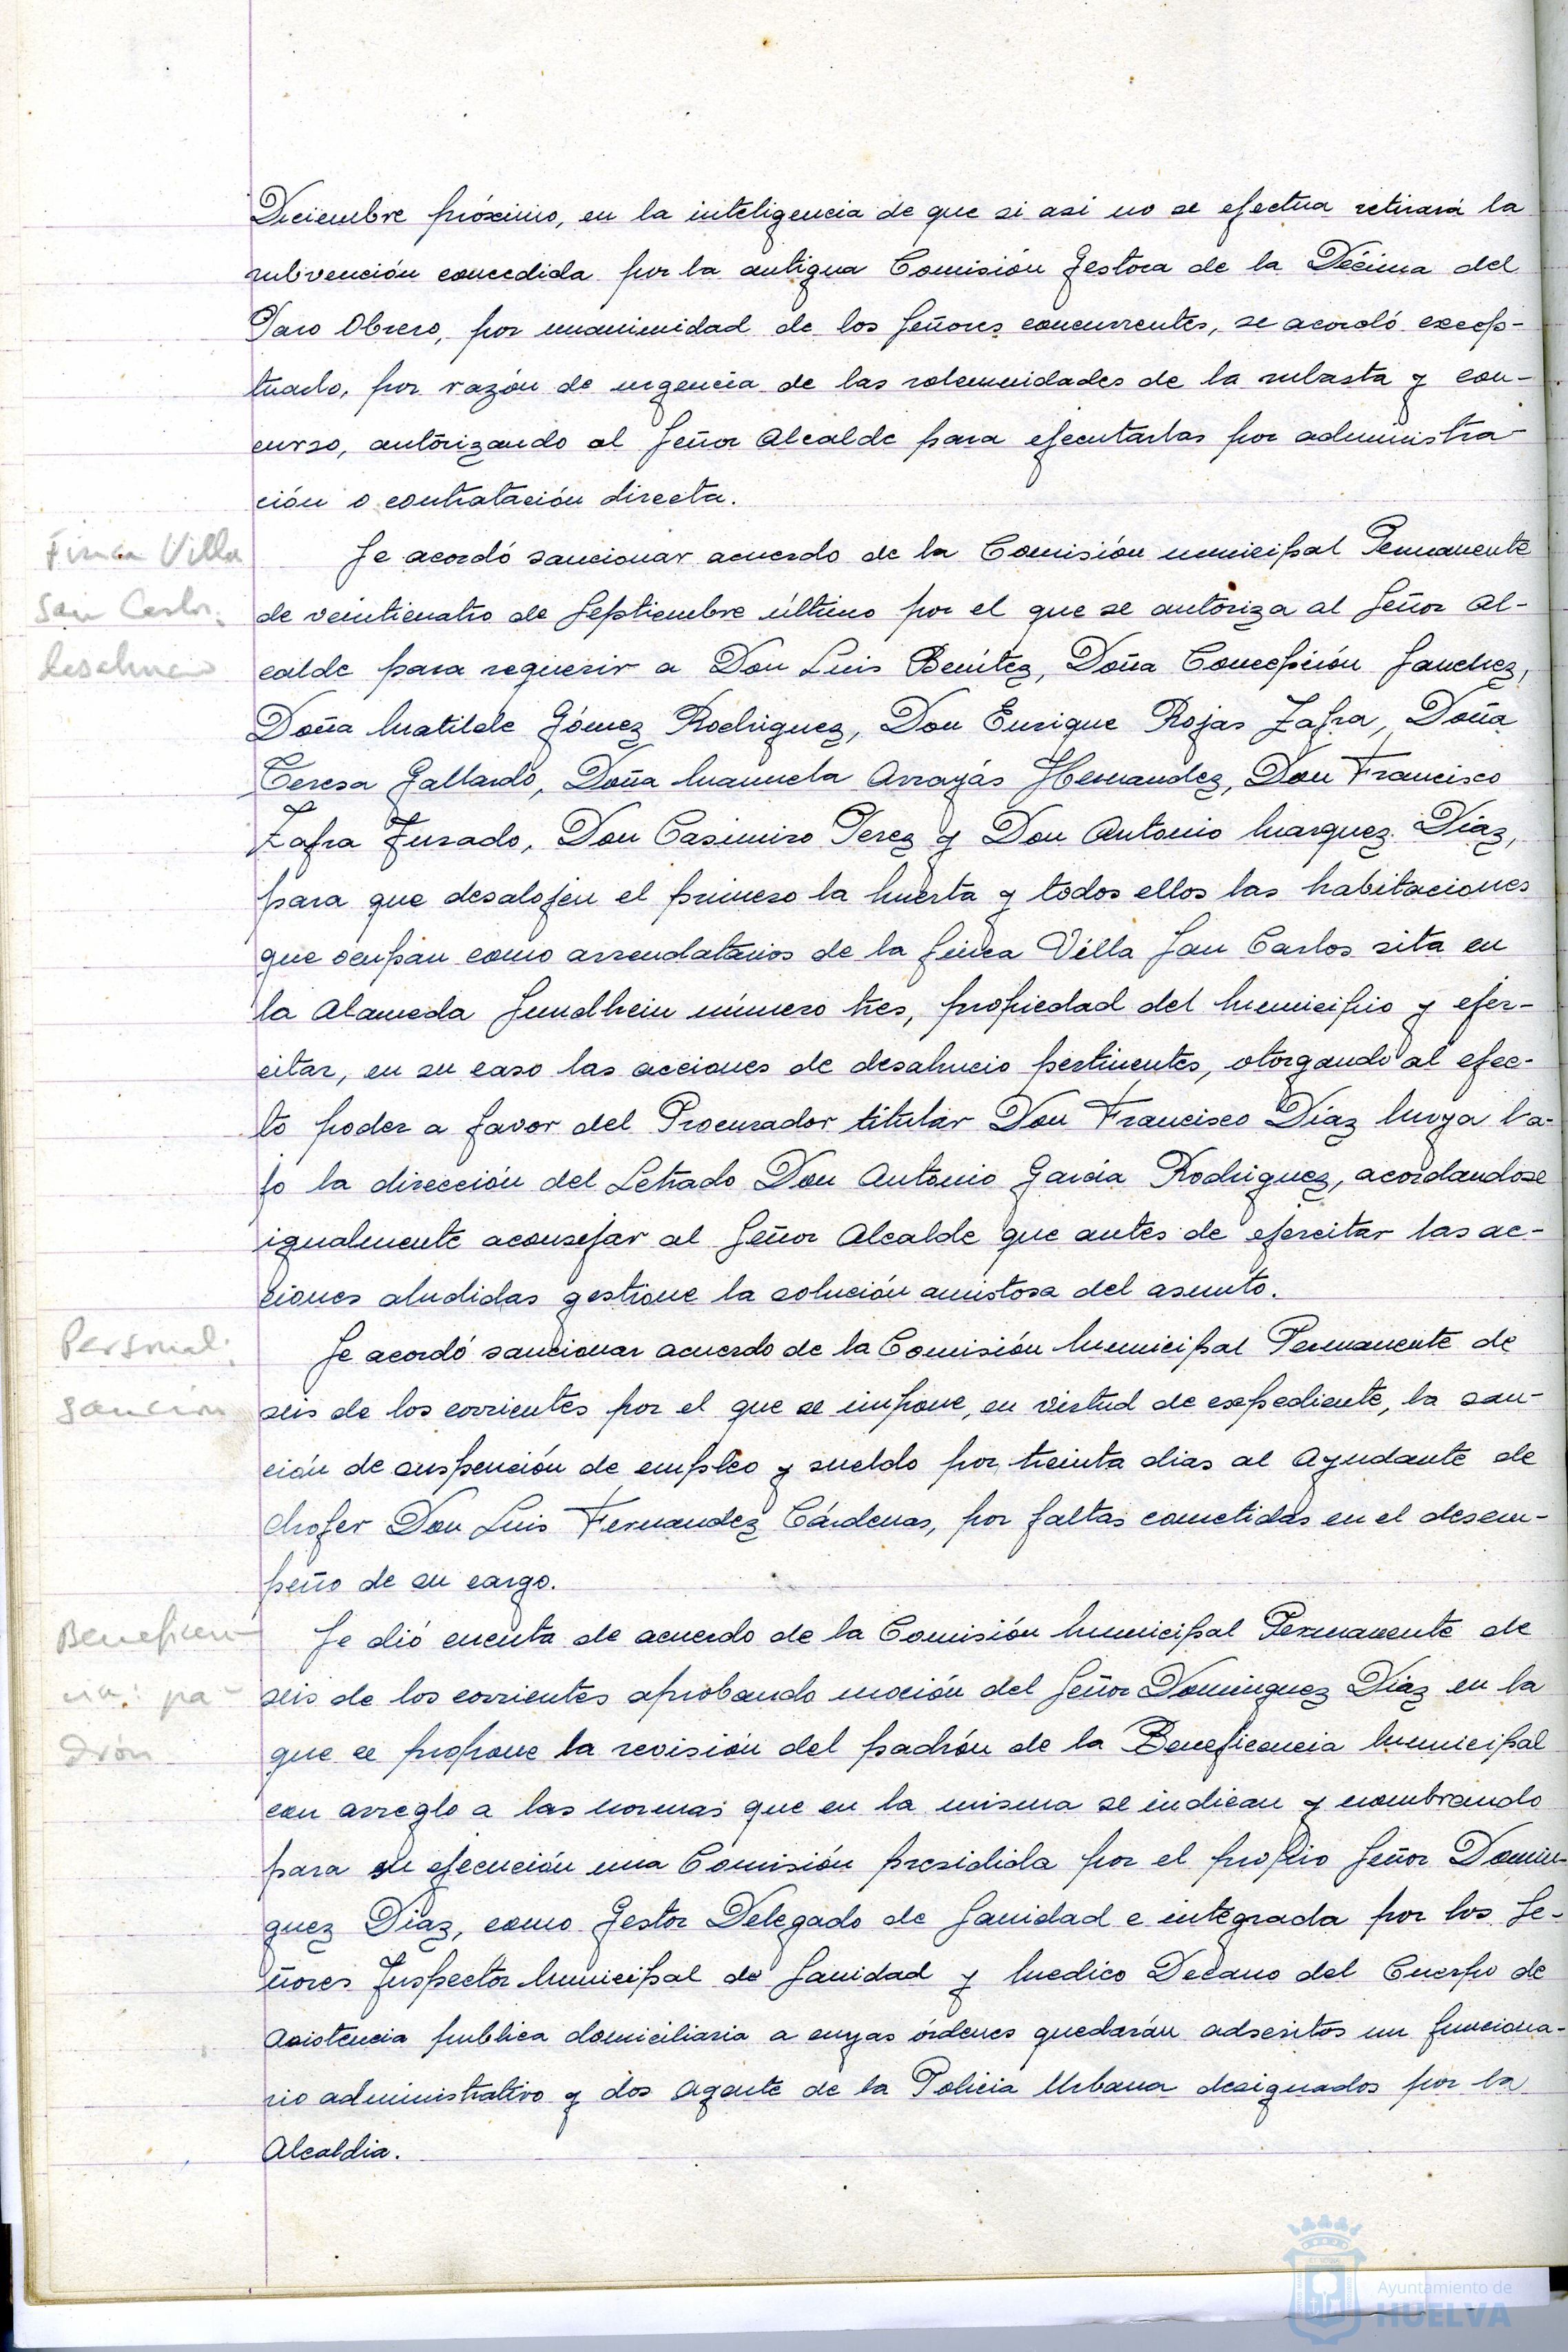 Diciembre próximo, en la inteligencia de que si asi no se efectua retirará la
subvención concedida por la antigua Comisión Gestora de la Décima del
Paro Obrero, por unanimidad de los Señores concurrentes, se acordó excep-
tuarlo, por razón de urgencia de las solemnidades de la subasta y con-
curso, autorizando al Señor Alcalde para ejecutarlas por administra-
ción o contratación directa.
Finca Villa
San Carlos.
desahucio
Se acordó sancionar acuerdo de la Comisión municipal Permanente
de veinticuatro de Septiembre último por el que se autoriza al Señor Al-
calde para requerir a Don Luis Benítez, Doña Concepción Sanchez,
Doña Matilde Gómez Rodriguez, Don Enrique Rojas Zafra, Doña
Teresa Gallardo, Doña Manuela Arrayás Hernandez, Don Francisco
Zafra Jurado, Don Casimiro Perez y Don Antonio Marquez Díaz,
para que desalojen el primero la huerta y todos ellos las habitaciones
que ocupan como arrendatarios de la finca Villa San Carlos sita en
la Alameda Sundhein número tres, propiedad del Municipio y ejer-
citar, en su caso las acciones de desahucio pertinentes, otorgando al efec-
to poder a favor del Procurador titular Don Francisco Díaz Moya ba-
jo la dirección del Letrado Don Antonio García Rodriguez, acordandose
igualmente aconsejar al Señor Alcalde que antes de ejercitar las ac-
ciones aludidas gestione la solución amistosa del asunto.
Personal:
sanción
Se acordó sancionar acuerdo de la Comisión Municipal Permanente de
seis de los corrientes por el que se impone, en virtud de expediente, la san-
ción de suspención de empleo y sueldo por treinta dias al Ayudante de
chofer Don Luis Fernandez Cárdenas, por faltas cometidas en el desem-
peño de su cargo.
Beneficen-
cia: pa-
drón
Se dió cuenta de acuerdo de la Comisión Municipal Permanente de
seis de los corrientes aprobando moción del Señor Dominguez Diaz en la
que se propone la revisión del padrón de la Beneficencia Municipal
con arreglo a las normas que en la misma se indican y nombrando
para su ejecución una Comisión presidida por el propio Señor Domin-
guez Diaz, como Gestor Delegado de Sanidad e integrada por los Se-
ñores Inspector Municipal de Sanidad y Medico Decano del Cuerpo de
Asistencia publica domiciliaria a cuyas órdenes quedarán adscritos un funciona-
rio administrativo y dos Agente de la Policia Urbana designados por la
Alcaldia.
Ayuntamiento de
HUELVA